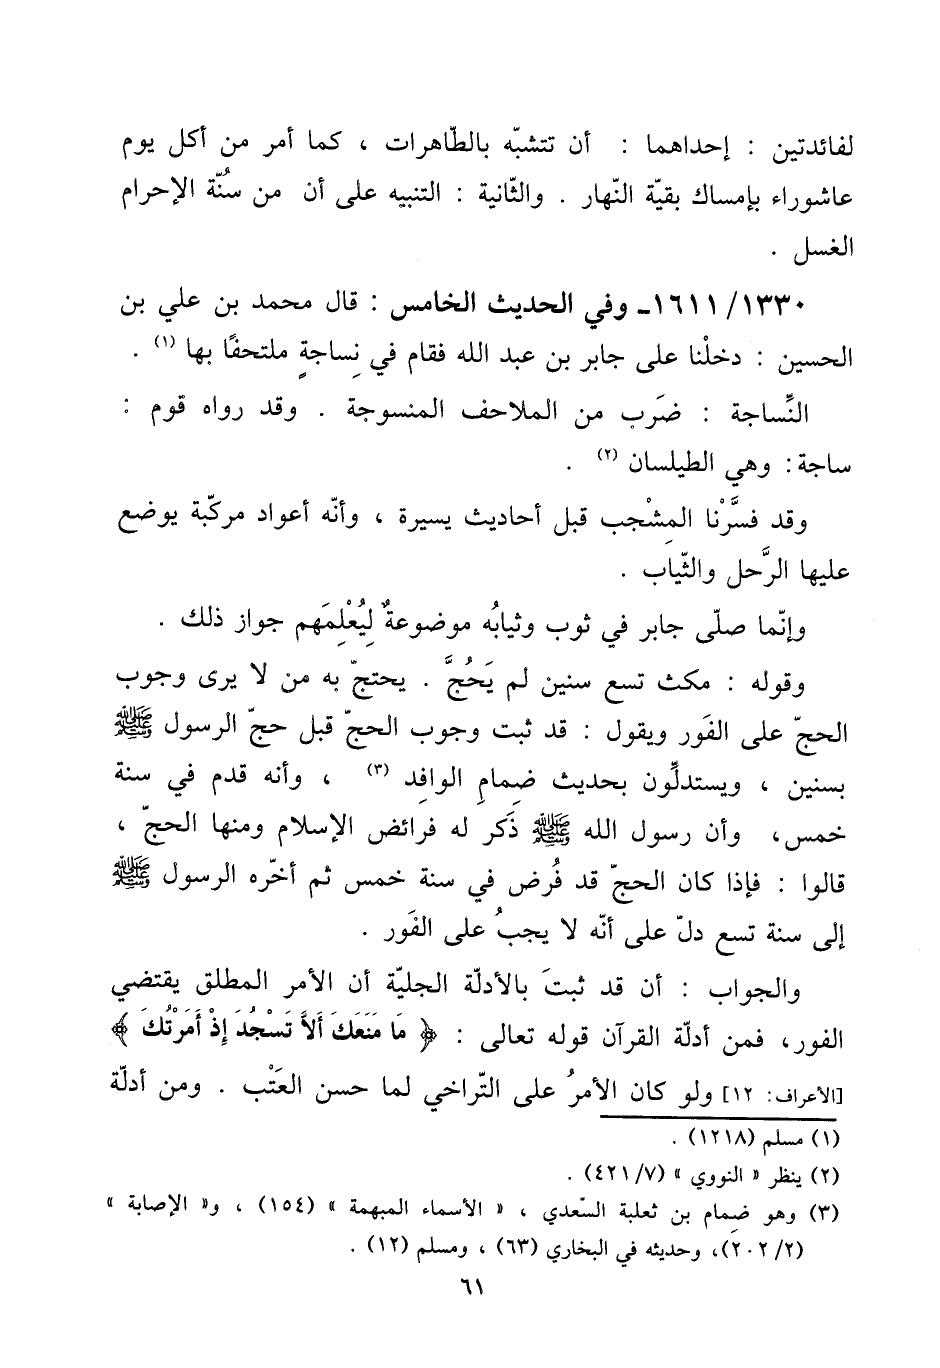 لفائدتين : إحداهما : أن تتشبّه بالطّاهرات ، كما أمر من أكل يوم
عاشوراء بإمساك بقيّة النّهار . والثّانية : التنبيه على أن من سُنّة الإحرام
الغسل .
١٦١١/١٣٣٠ـ وفي الحديث الخامس : قال محمد بن علي بن
الحسين : دخلْنا على جابر بن عبد الله فقام في نِساجةٍ ملتحفًا بها (١) .
النِّساجة : ضَرب من الملاحف المنسوجة . وقد رواه قوم :
ساجة : وهي الطيلسان (٢) .
وقد فسَّرْنا المِشْجب قبل أحاديث يسيرة ، وأنّه أعواد مركّبة يوضع
عليها الرَّحل والثّياب .
وإنّما صلّى جابر في ثوب وثيابُه موضوعةٌ لِيُعْلِمَهم جواز ذلك .
وقوله : مكث تسع سنين لم يَحُجَّ . يحتجّ به من لا يرى وجوب
الحجّ على الفَور ويقول : قد ثبت وجوب الحجّ قبل حجّ الرسول ﷺ
بسنين ، ويستدلّون بحديث ضِمامِ الوافِد (٣) ، وأنه قدم في سنة
خمس، وأن رسول الله ﷺ ذَكر له فرائض الإسلام ومنها الحجّ ،
قالوا : فإذا كان الحجّ قد فُرض في سنة خمس ثم أخّره الرسول ﷺ
إلى سنة تسع دلّ على أنّه لا يجبُ على الفَور .
والجواب : أن قد ثبتَ بالأدلّة الجليّة أن الأمر المطلق يقتضي
الفور، فمن أدلّة القرآن قوله تعالى : ﴿ مَا مَنَعَكَ أَلاَّ تَسْجُدَ إِذْ أَمَرْتُكَ ﴾
[الأعراف: ١٢] ولو كان الأمرُ على التّراخي لما حسن العَتْب . ومن أدلّة
(١) مسلم (١٢١٨) .
(٢) ينظر « النووي » (٤٢١/٧) .
(٣) وهو ضِمام بن ثعلبة السّعدي ، « الأسماء المبهمة » (١٥٤) ، و« الإصابة »
(٢٠٢/٢)، وحديثه في البخاري (٦٣) ، ومسلم (١٢) .
٦١